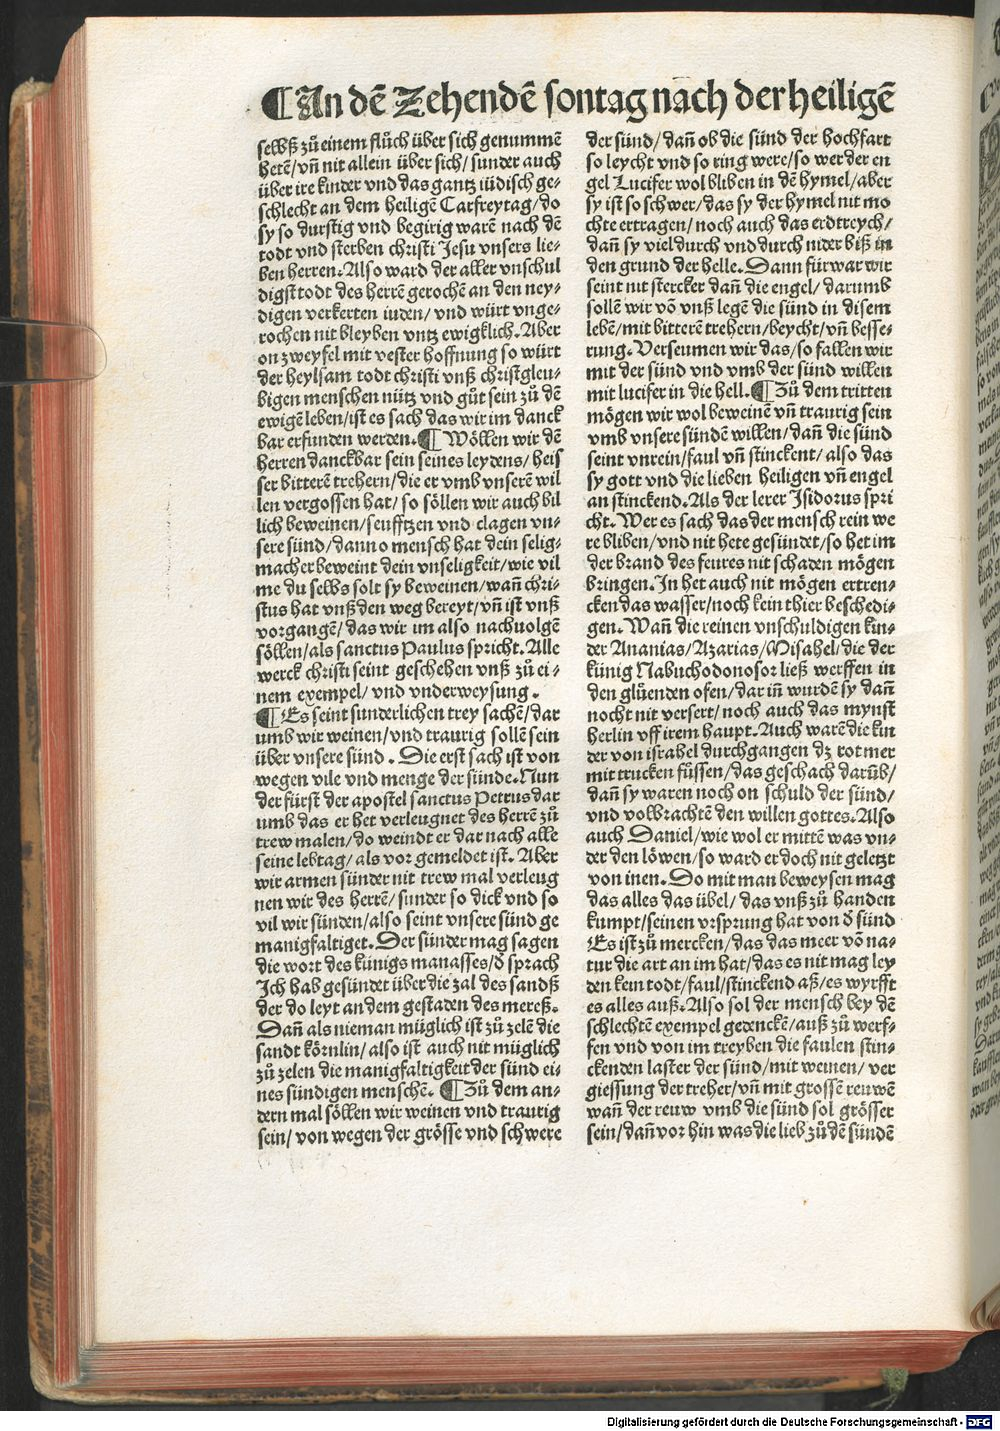 ¶An dẽ Zehendẽ sontag nach der heiligẽ
selbß zů einem flůch über sich genummẽ
hetẽ/vñ nit allein über sich/sunder auch
über ire kinder vnd das gantz iüdisch ge-
schlecht an dem heiligẽ Carfreytag/do
sy so durstig vnd begirig warẽ nach dẽ
todt vnd sterben christi Jesu vnsers lie-
ben herren. Also ward der aller vnschul
digst todt des herrẽ gerochẽ an den ney-
digen verkerten iuden/vnd würt vnge-
rochen nit bleyben vntz ewigklich. Aber
on zweyfel mit vester hoffnung so würt
der heylsam todt christi vnß christgleu-
bigen menschen nütz vnd gůt sein zů dẽ
ewigẽ leben/ist es sach das wir im danck
bar erfunden werden. ¶ Wöllen wir dẽ
herren danckbar sein seines leydens/heis
ser bitterẽ trehern/die er vmb vnserẽ wil
len vergossen hat/so söllen wir auch bil
lich beweinen/seufftzen vnd clagen vn-
sere sünd/dann o mensch hat dein selig-
macher beweint dein vnseligkeit/wie vil
me du selbs solt sy beweinen/wañ chri-
stus hat vnß den weg bereyt/vñ ist vnß
vorgangẽ/das wir im also nachuolgẽ
söllen/als sanctus Paulus spricht. Alle
werck christi seint geschehen vnß zů ei-
nem exempel/vnd vnderweysung.
¶Es seint sunderlichen trey sachẽ/dar
umb wir weinen/vnd traurig sollẽ sein
über vnsere sünd. Die erst sach ist von
wegen vile vnd menge der sünde. Nun
der fürst der apostel sanctus Petrus dar
umb das er het verleugnet des herrẽ zů
trew malen/do weindt er dar nach alle
seine lebtag/als vor gemeldet ist. Aber
wir armen sünder nit trew mal verleug
nen wir des herrẽ/sunder so dick vnd so
vil wir sünden/also seint vnsere sünd ge
manigfaltiget. Der sünder mag sagen
die wort des künigs manasses/ð sprach
Ich hab gesündet über die zal des sandß
der do leyt an dem gestaden des mereß.
Dañ als nieman müglich ist zů zelẽ die
sandt körnlin/also ist auch nit müglich
zů zelen die manigfaltigkeit der sünd ei-
nes sündigen menschẽ. ¶Zů dem an-
dern mal söllen wir weinen vnd traurig
sein/von wegen der grösse vnd schwere
der sünd/dañ ob die sünd der hochfart
so leycht vnd so ring were/so wer der en
gel Lucifer wol bliben in dẽ hymel/aber
sy ist so schwer/das sy der hymel nit mo
chte ertragen/noch auch das erdtreych/
dañ sy viel durch vnd durch nider biß in
den grund der helle. Dann fürwar wir
seint nit stercker dañ die engel/darumb
sollẽ wir võ vnß legẽ die sünd in disem
lebẽ/mit bitterẽ trehern/beycht/vñ besse-
rung. Verseumen wir das/so fallen wir
mit der sünd vnd vmb der sünd willen
mit lucifer in die hell. ¶Zů dem tritten
mögen wir wol beweinẽ vñ traurig sein
vmb vnsere sündẽ willen/dañ die sünd
seint vnrein/faul vñ stinckent/also das
sy gott vnd die lieben heiligen vñ engel
an stinckend. Als der lerer Isidorus spri
cht. Wer es sach das der mensch rein we
re bliben/vnd nit hete gesündet/so het im
der brand des feures nit schaden mögen
bringen. In het auch nit mögen ertren-
cken das wasser/noch kein thier beschedi-
gen. Wañ die reinen vnschuldigen kin-
der Ananias/Azarias/Misahel/die der
künig Nabuchodonosor ließ werffen in
den glůenden ofen/dar iñ wurdẽ sy dañ
nocht nit versert/noch auch das mynst
herlin vff irem haupt. Auch warẽ die kin
der von israhel durchgangen dz rot mer
mit trucken fůssen/das geschach darũb/
dañ sy waren noch on schuld der sünd/
vnd volbrachtẽ den willen gottes. Also
auch Daniel/wie wol er mittẽ was vn-
der den löwen/so ward er doch nit geletzt
von inen. Do mit man beweysen mag
das alles das übel/das vnß zů handen
kumpt/seinen vrsprung hat von ð sünd
Es ist zů mercken/das das meer võ na-
tur die art an im hat/das es nit mag ley
den kein todt/faul/stinckend aß/es wyrfft
es alles auß. Also sol der mensch bey dẽ
schlechtẽ exempel gedenckẽ/auß zů werf-
fen vnd von im treyben die faulen stin-
ckenden laster der sünd/mit weinen/ver
giessung der treher/vñ mit grossẽ reuwẽ
wañ der reuw vmb die sünd sol grösser
sein/dañ vor hin was die lieb zů dẽ sündẽ
Digitalisierung gefördert durch die Deutsche Forschungsgemeinschaft - DFG